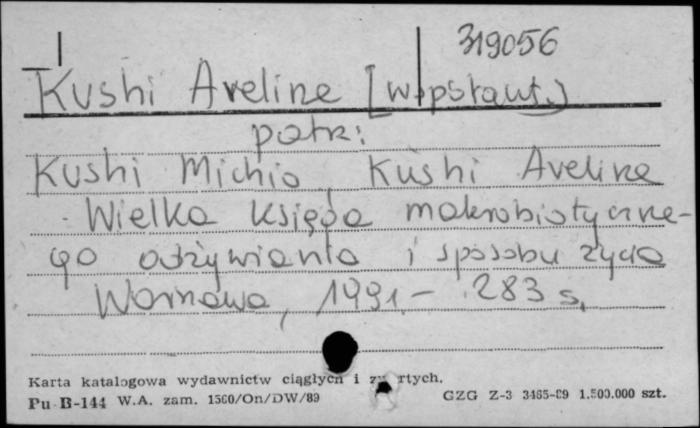 319056
Kushi Aveline [współaut.)
patrz:
Kushi Michio, Kushi Aveline
Wielka księga makrobiotyczne-
go odżywiania i sposobu życia
Warszawa, 1991.- 283 s.
Karta katalogowa wydawnictw ciągłych i zwartych.
Pu B-144 W.A. zam. 1560/On/DW/89 GZG Z-3 3465-89 1.500.000 szt.